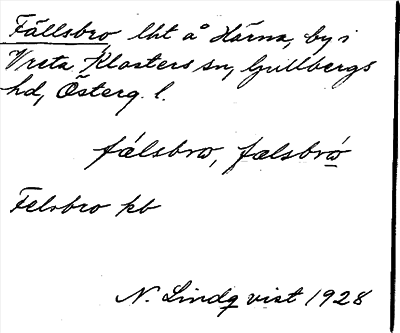 Fällsbro lht å Härna, by i
Vreta Klosters sn, Gullbergs
hd, Österg. l.
fälsbro, fælsbrò
Felsbro kb
N. Lindqvist 1928